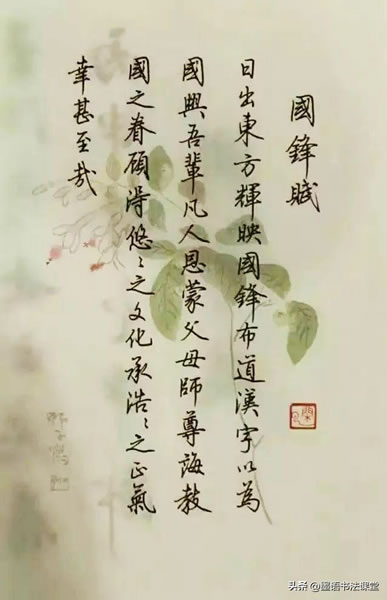 國鋒賦
日出東方輝映國鋒布道漢字以為
國興吾輩凡人恩蒙父母師尊誨教
國之眷顧得悠〻之文化承浩〻之正氣
幸甚至哉
头条@墨语书法课堂